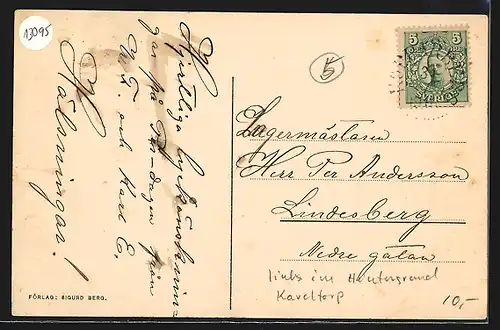 13095
5
5 5
SVERIGE
Hjertliga lyckönsknin-
gar på -dagen från
M. T. och Karl E.
Hälsningar!
Lagermästaren
Herr Per Andersson
Lindesberg
Nedre gatan
links im Hintergrund
Kaveltorp
10,-
FÖRLAG: SIGURD BERG.